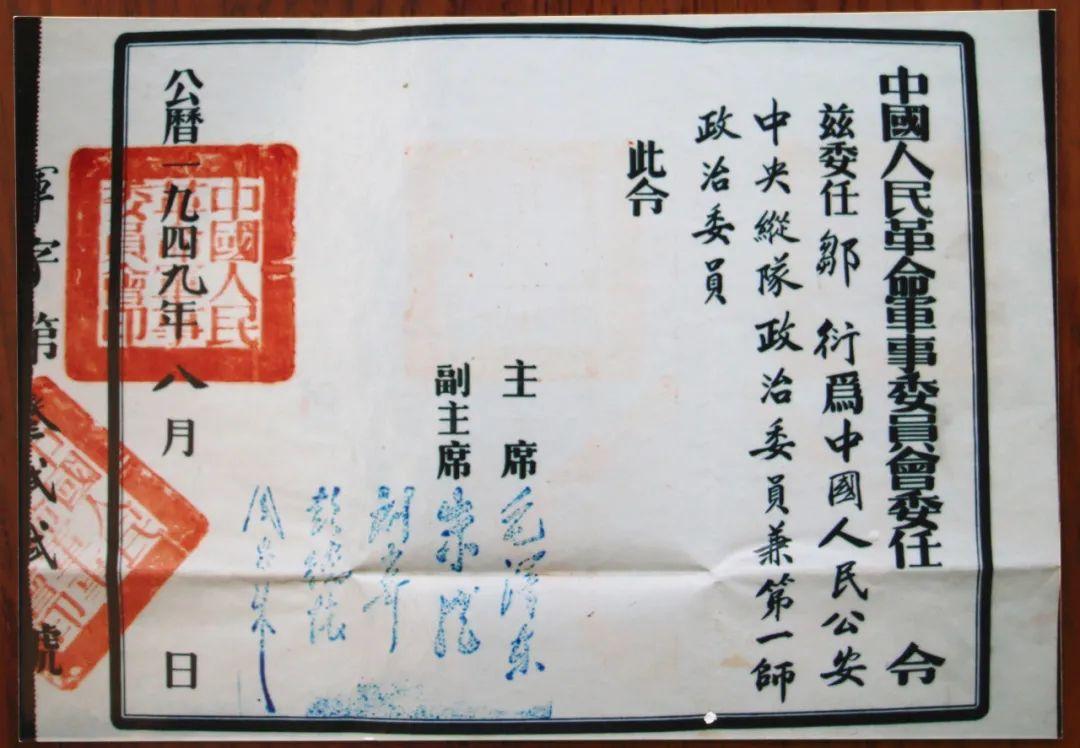 中國人民革命軍事委員會委任令
兹委任鄒衍爲中國人民公安
中央縱隊政治委員兼第一師
政治委員
此令
主席 毛澤東
副主席 朱德
劉少奇
彭德懷
周恩來
公曆一九四九年八月 日
中國人民革命軍事委員會印
軍字第叄貳貳號